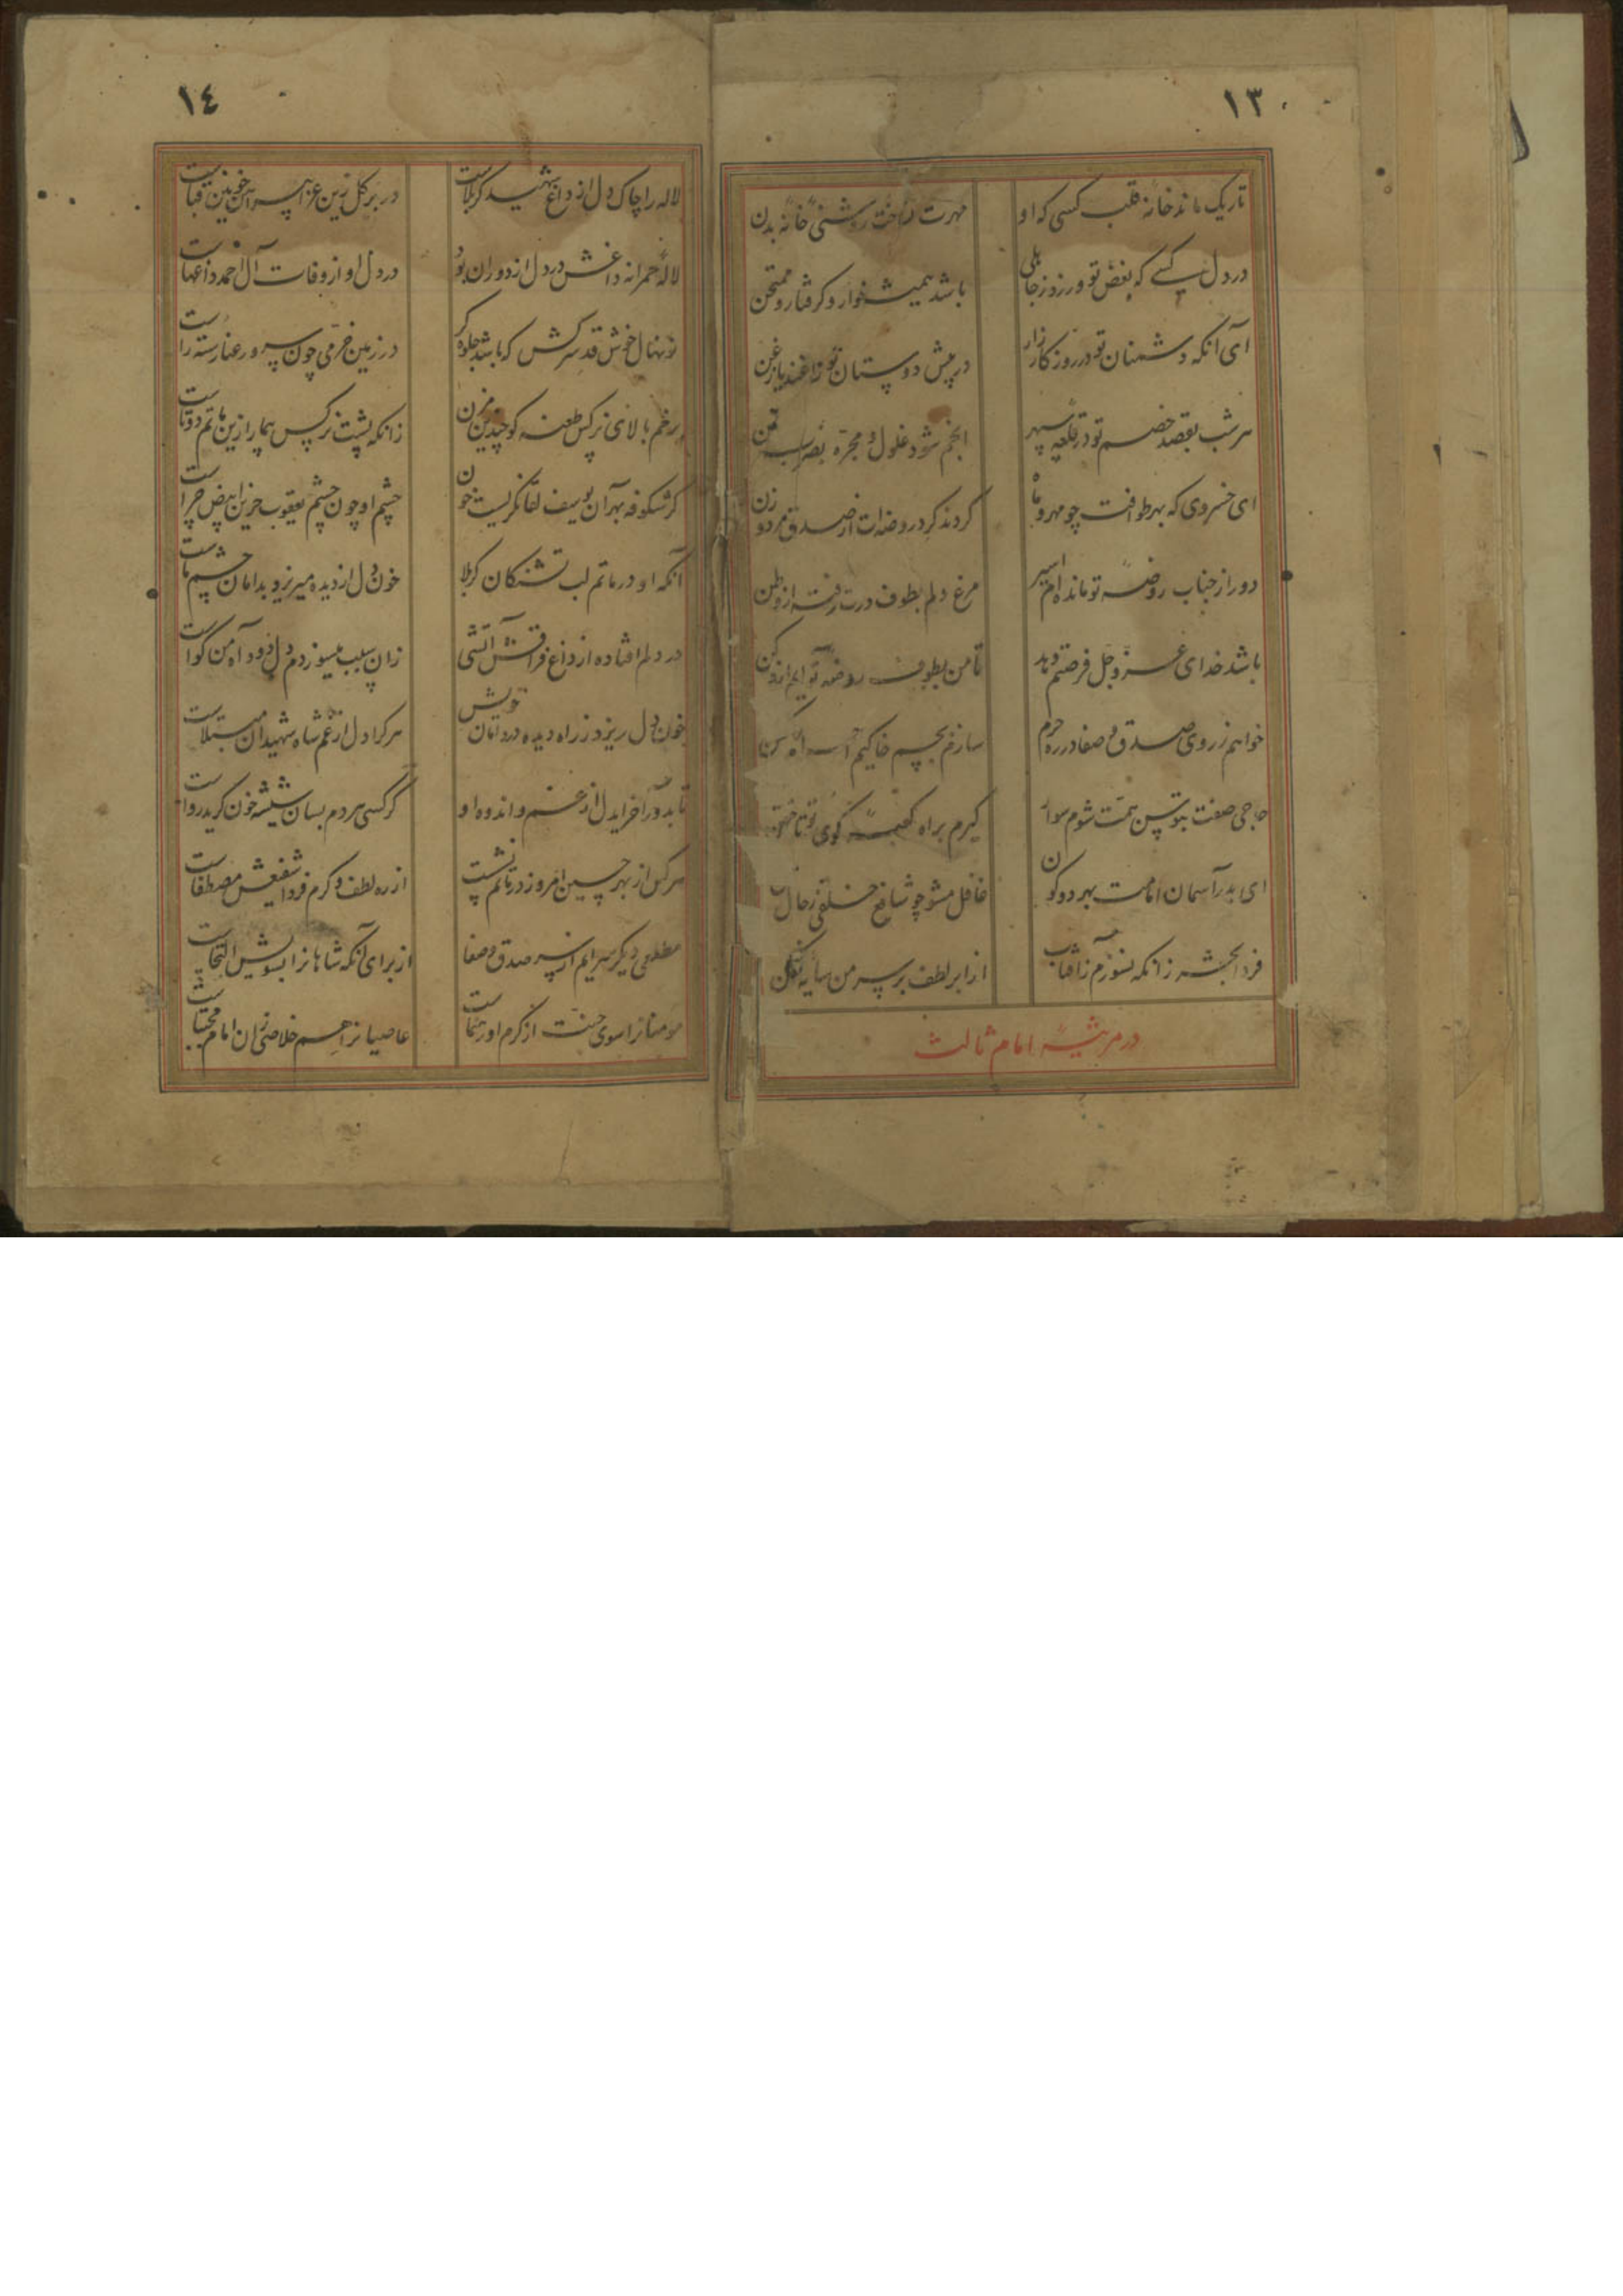 ١٣
تاریک ماند خانهٔ قلب کسی که او
مهرت نساخت روشنی خانهٔ بدن
در دل کسی که بغض تو ورزد ز جاهلی
باشد همیشه خوار و گرفتار و ممتحن
آی آنکه دشمنان تو در روزگار زار
در پیش دوستان تو زاغند یا زغن
هر شب بقصد خصم تو در قلعه سپهر
انجم شود غلول و مجره
ای خسروی که بهر طوافت چو مهر و ماه
کردند گرد روضه‌ات از صدق مرد و زن
دور از جناب روضه تو مانده‌ام اسیر
مرغ دلم بطوف درت رفته از وطن
باشد خدای عز و جل فرصتم دهد
تا من بطوف روضه تو آیم از
خواهم ز روی صدق و صفا در ره حرم
سازم بچشم خاکیم
حاجی صفت بتوسن همت شوم سوار
گیرم براه کعبه کوی تو تاختن
ای بدر آسمان امامت بهر دو کون
غافل مشو چو شافع خلقی ز حال
فردا بحشر زانکه نسوزم ز آفتاب
از ابر لطف بر سر من سایه فکن
در مرثیهٔ امام ثالث
١٤
لاله را چاک دل از داغ شهید کربلاست
در بر گل زین عزا پیراهن خونین قباست
لالهٔ حمرا نه داغش در دل از دوران بود
در دل او از وفات آل احمد داغهاست
نونهال خوش قد سرکش که باشد جلوه گر
در زمین خرمی چون سرو رعنا رسته راست
بر خم بالای نرگس طعنه گو چندین مزن
زانکه پشت نرگس بیمار ازین ماتم دوتاست
گر شکوفه بهر آن یوسف لقا نگریست خون
چشم او چون چشم یعقوب حزین ابیض چراست
آنکه او در ماتم لب تشنگان کربلا
خون دل از دیده میریزد بدامان چشم ماست
در دلم افتاده از داغ فراقش آتشی
زان سبب میسوزدم دل دود آه من گواست
خون دل ریزد ز راه دیده در دامان خویش
هر کرا دل از غم شاه شهیدان مبتلاست
تا بدور آخر ایدل از غم و اندوه او
گر کسی هر دم بسان شیشه خون گرید رواست
هر کس از بهر حسین امروز در ماتم نشست
از ره لطف و کرم فردا شفیعش مصطفاست
مطلعی دیگر سرایم از سر صدق و صفا
از برای آنکه شاهانرا بسویش التجاست
مومنانرا سوی جنت از کرم او رهنماست
عاصیانرا هم خلاصی زان امام مجتباست